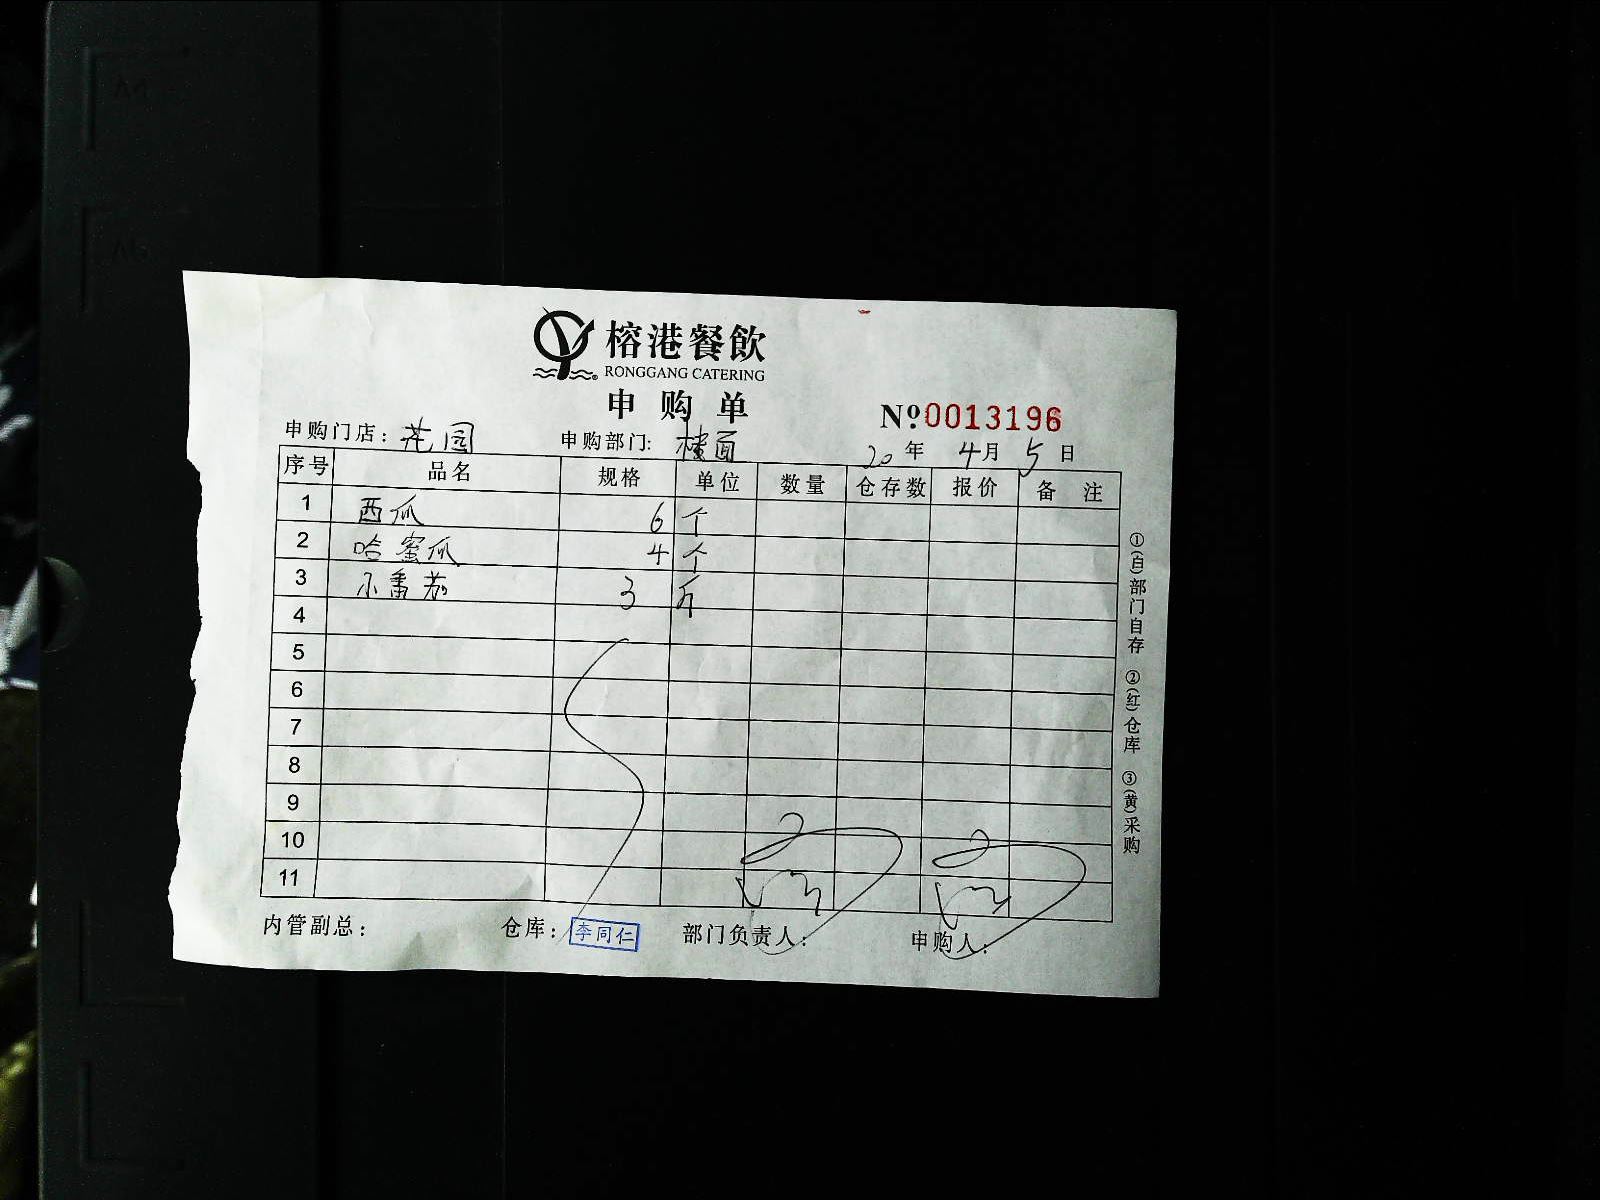 榕港餐飲
RONGGANG CATERING
申购单
№:0013196
申购门店：花园 申购部门: 楼面 20年4月5日
序号 品名 规格 单位 数量 仓存数 报价 备注
1 西瓜 6 个
2 哈蜜瓜 4 个
3 小番茄 3 斤
4
5
6
7
8
9
10
11
内管副总： 仓库：李同仁 部门负责人： 申购人：
①(白)部门自存 ②(红)仓库 ③(黄)采购